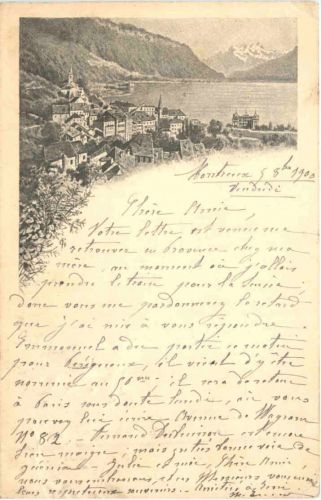 Montreux 5 8bre 1900
Vendredi
Chère Amie,
Votre lettre est venue me
retrouver en Provence chez ma
mère, au moment où j'allais
prendre le train pour la Suisse,
donc vous me pardonnerez le retard
que j'ai mis à vous répondre.
Emmanuel a dû partir ce matin
pour Périgueux, il vient d'y être
nommé au 50me - il sera de retour
à Paris sans doute lundi, où vous
pouvez lui écrire Avenue de Wagram
No 82 - Fernand est encore
bien maigre; mais en très bonne voie de
guérison - Julie et moi, Chère Amie,
vous